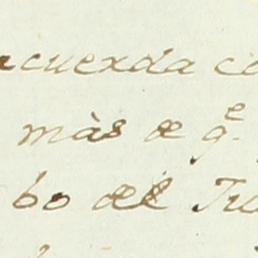 acuerda co
màs de q.e
bo del Tu